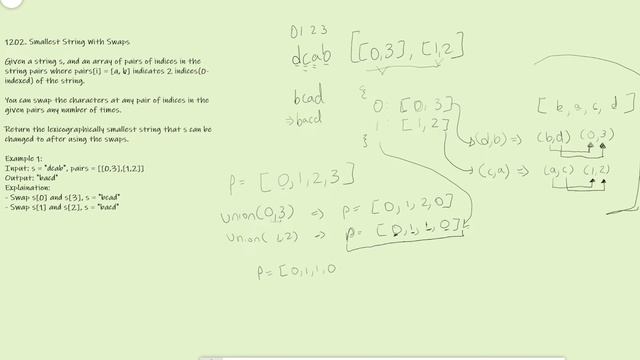 1202. Smallest String With Swaps
Given a string s, and an array of pairs of indices in the
string pairs where pairs[i] = [a, b] indicates 2 indices(0-
indexed) of the string.
You can swap the characters at any pair of indices in the
given pairs any number of times.
Return the lexicographically smallest string that s can be
changed to after using the swaps.
Example 1:
Input: s = "dcab", pairs = [[0,3],[1,2]]
Output: "bacd"
Explaination:
- Swap s[0] and s[3], s = "bcad"
- Swap s[1] and s[2], s = "bacd"
0 1 2 3
dcab [[0,3], [1,2]]
bcad
⇒ bacd
{
0: [0, 3]
1: [1, 2]
}
[b, a, c, d]
(d,b) ⇒ (b,d) (0,3)
(c,a) ⇒ (a,c) (1,2)
P = [0,1,2,3]
union(0,3) ⇒ P = [0,1,2,0]
union(1,2) ⇒ P = [0,1,1,0]
P = [0,1,1,0